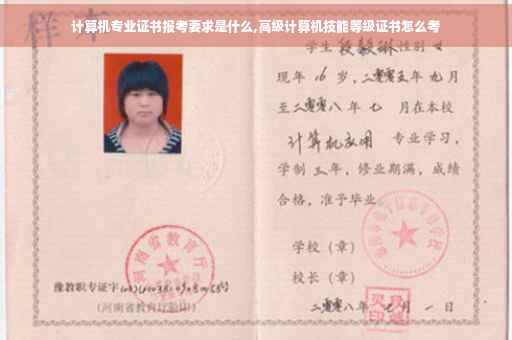 计算机专业证书报考要求是什么,高级计算机技能等级证书怎么考
样本
学生段毅琳性别女
现年16岁,二零零五年九月
至二零零八年七月在本校
计算机应用 专业学习,
学制三年,修业期满,成绩
合格,准予毕业
学校(章)
校长(章)
二零零八年七月一日
河南省教育厅
豫教职专证字
(河南省教育厅验印)